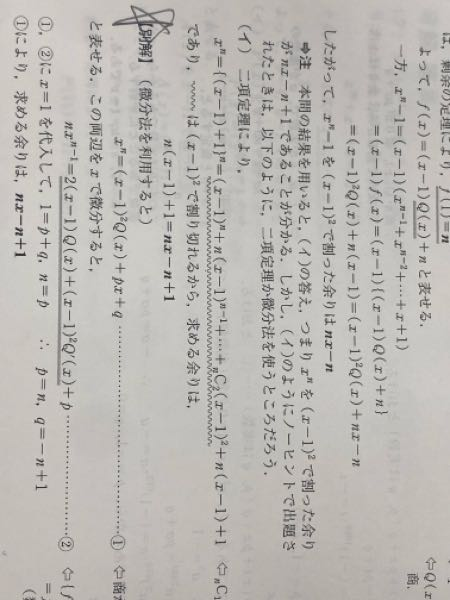 は，剰余の定理により，f(1)=n
よって，f(x)=(x−1)Q(x)+n と表せる．
一方，xⁿ−1=(x−1)(xⁿ⁻¹+xⁿ⁻²+…+x+1)
=(x−1)f(x)=(x−1){(x−1)Q(x)+n}
=(x−1)²Q(x)+n(x−1)=(x−1)²Q(x)+nx−n
したがって，xⁿ−1 を (x−1)² で割った余りは nx−n
⇨注 本問の結果を用いると，(イ)の答え，つまり xⁿ を (x−1)² で割った余り
が nx−n+1 であることが分かる．しかし，(イ)のようにノーヒントで出題さ
れたときは，以下のように，二項定理か微分法を使うところだろう．
(イ) 二項定理により，
xⁿ={(x−1)+1}ⁿ=(x−1)ⁿ+n(x−1)ⁿ⁻¹+…+ₙC₂(x−1)²+n(x−1)+1 ⇦ₙC₁
であり，〰〰は (x−1)² で割り切れるから，求める余りは，
n(x−1)+1=nx−n+1
【別解】 (微分法を利用すると)
xⁿ=(x−1)²Q(x)+px+q ………① ⇦商
と表せる．この両辺を x で微分すると，
nxⁿ⁻¹=2(x−1)Q(x)+(x−1)²Q′(x)+p ………② ⇦{f
①，②に x=1 を代入して，1=p+q, n=p ∴ p=n, q=−n+1
①により，求める余りは，nx−n+1
⇦Q(x
商．